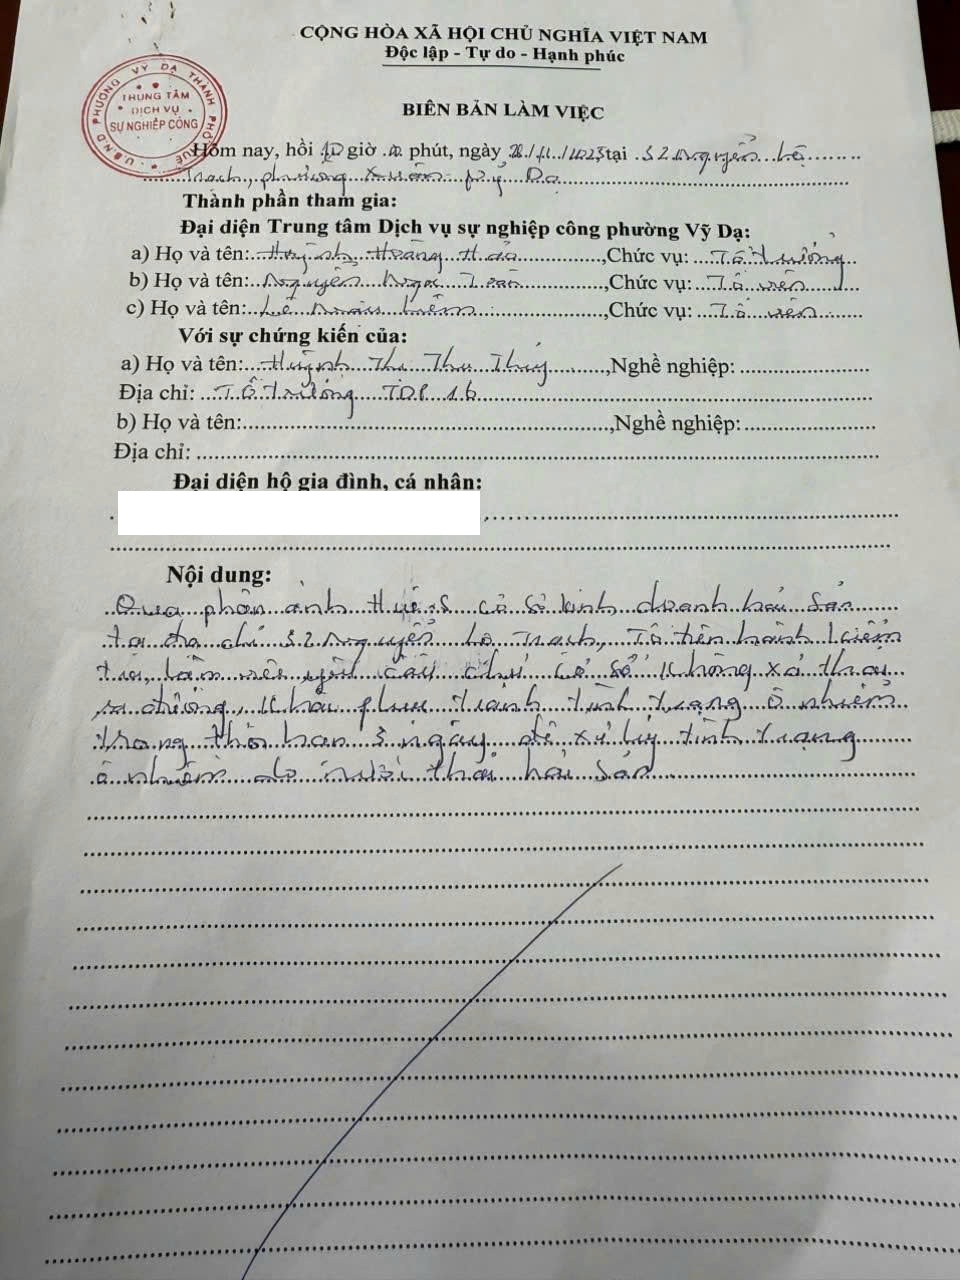 CỘNG HÒA XÃ HỘI CHỦ NGHĨA VIỆT NAM
Độc lập - Tự do - Hạnh phúc
U.B.N.D PHƯỜNG VỸ DẠ THÀNH PHỐ HUẾ
TRUNG TÂM
DỊCH VỤ
SỰ NGHIỆP CÔNG
BIÊN BẢN LÀM VIỆC
Hôm nay, hồi 10 giờ phút, ngày 28/11/2025 tại 52 Nguyễn Lộ
Trạch, phường Vỹ Dạ
Thành phần tham gia:
Đại diện Trung tâm Dịch vụ sự nghiệp công phường Vỹ Dạ:
a) Họ và tên: Huỳnh Hoàng, Chức vụ: Tổ trưởng
b) Họ và tên: Nguyễn Ngọc, Chức vụ: Tổ viên
c) Họ và tên: Lê, Chức vụ: Tổ viên
Với sự chứng kiến của:
a) Họ và tên: Huỳnh Thị Thu Thủy, Nghề nghiệp:
Địa chỉ: Tổ trưởng TDP 16
b) Họ và tên:, Nghề nghiệp:
Địa chỉ:
Đại diện hộ gia đình, cá nhân:
Nội dung:
Qua phản ánh Huế-S cơ sở kinh doanh hải sản
tại địa chỉ 52 Nguyễn Lộ Trạch, Tổ tiến hành kiểm
tra, làm việc yêu cầu chủ cơ sở không xả thải
ra đường, khắc phục tránh tình trạng ô nhiễm
trong thời hạn 3 ngày để xử lý tình trạng
ô nhiễm do nước thải hải sản